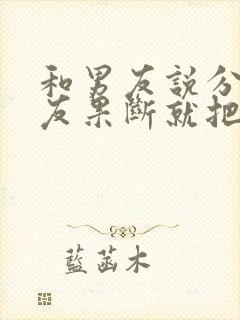 和男友説分
友果斷就把
藍菡木